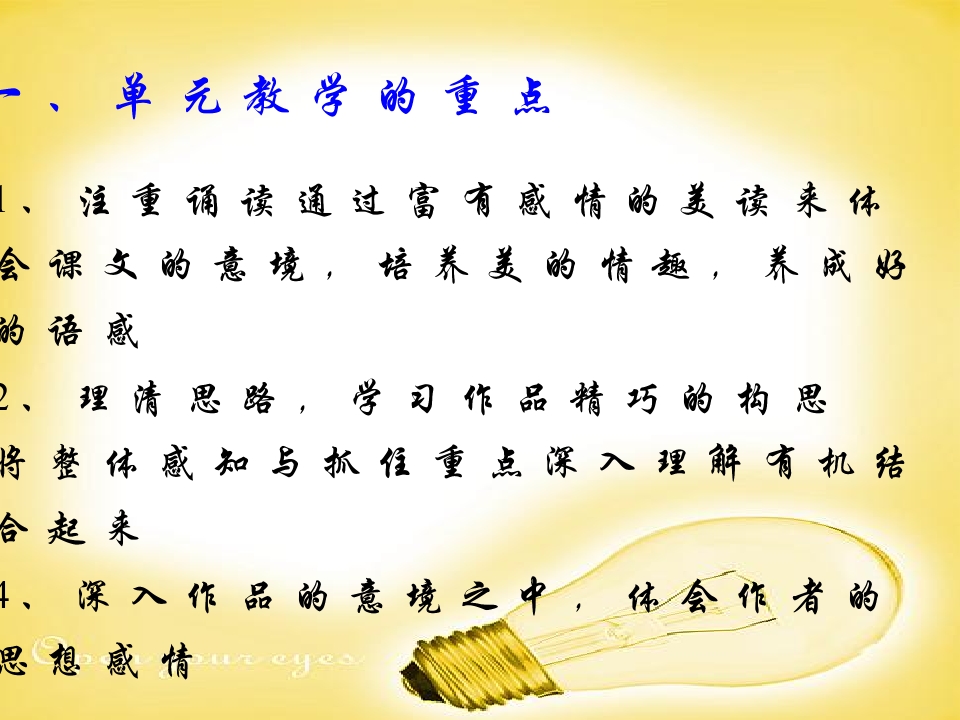 一、单元教学的重点
1、注重诵读通过富有感情的美读来体
会课文的意境，培养美的情趣，养成好
的语感
2、理清思路，学习作品精巧的构思
将整体感知与抓住重点深入理解有机结
合起来
4、深入作品的意境之中，体会作者的
思想感情
Open your eyes